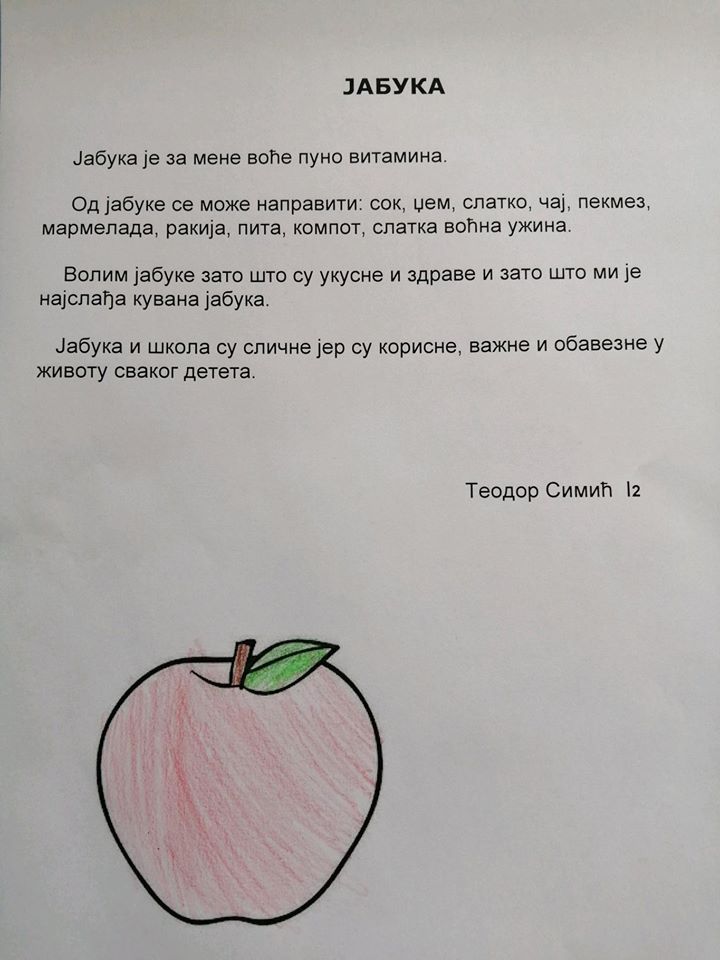 ЈАБУКА
Јабука је за мене воће пуно витамина.
Од јабуке се може направити: сок, џем, слатко, чај, пекмез,
мармелада, ракија, пита, компот, слатка воћна ужина.
Волим јабуке зато што су укусне и здраве и зато што ми је
најслађа кувана јабука.
Јабука и школа су сличне јер су корисне, важне и обавезне у
животу сваког детета.
Теодор Симић I2